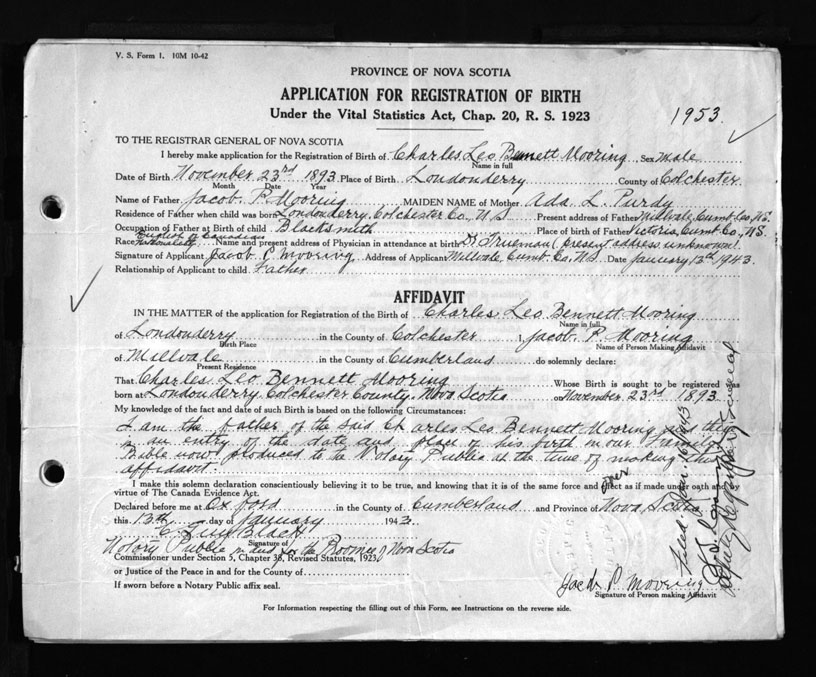 V. S. Form 1. 10M 10-42
PROVINCE OF NOVA SCOTIA
APPLICATION FOR REGISTRATION OF BIRTH
Under the Vital Statistics Act, Chap. 20, R. S. 1923
1953
TO THE REGISTRAR GENERAL OF NOVA SCOTIA
I hereby make application for the Registration of Birth of Charles Leo Bennett Mooring Sex Male
Name in full
Date of Birth November 23rd 1893 Place of Birth Londonderry County of Colchester
Month Date Year
Name of Father Jacob P. Mooring MAIDEN NAME of Mother Ada L. Purdy
Residence of Father when child was born Londonderry Colchester Co., N S Present address of Father Millvale, Cumb. Co., N.S.
Occupation of Father at Birth of child Blacksmith Place of Birth of Father Victoria, Cumb. Co., N.S.
English & Canadian
Race Nationality Name and present address of Physician in attendance at birth Dr. Trueman (present address unknown)
Signature of Applicant Jacob P Mooring Address of Applicant Millvale, Cumb. Co., N S Date January 13th 1943.
Relationship of Applicant to child Father
AFFIDAVIT
IN THE MATTER of the application for Registration of the Birth of Charles Leo Bennett Mooring
Name in full
of Londonderry in the County of Colchester I, Jacob P. Mooring
Birth Place Name of Person Making Affidavit
of Millvale in the County of Cumberland do solemnly declare:
Present Residence
That Charles Leo Bennett Mooring Whose Birth is sought to be registered was
born at Londonderry Colchester County, Nova Scotia on November 23rd 1893
My knowledge of the fact and date of such Birth is based on the following Circumstances:
I am the father of the said Charles Leo Bennett Mooring and there
is an entry of the date and place of his birth in our Family
Bible now produced to the Notary Public at the time of making this
affidavit.
I make this solemn declaration conscientiously believing it to be true, and knowing that it is of the same force and effect as if made under oath and by
virtue of The Canada Evidence Act.
Declared before me at Oxford in the County of Cumberland and Province of Nova Scotia
this 13th day of January 1943
Black
Signature of
Notary Public in and for the Province of Nova Scotia
Commissioner under Section 5, Chapter 38, Revised Statutes, 1923
or Justice of the Peace in and for the County of
If sworn before a Notary Public affix seal.
Jacob P Mooring
Signature of Person making Affidavit
For Information respecting the filling out of this Form, see Instructions on the reverse side.
Filed Jan. 1943
Deputy Registrar General